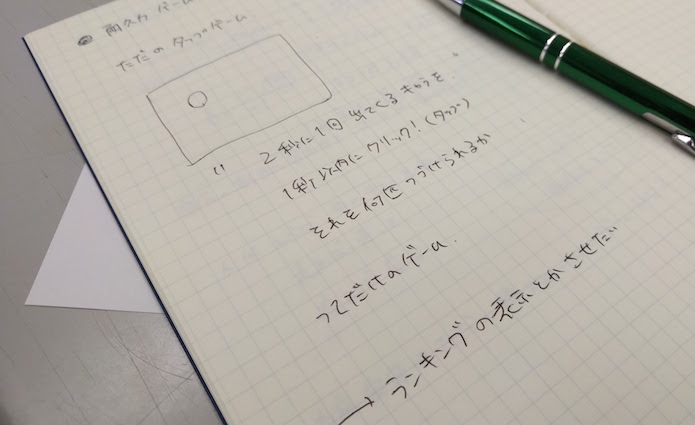 耐久力ゲーム
ただのタップゲーム
2秒に1回出てくるキャラを
1秒以内にクリック!(タップ)
それを何回つづけられるか
ってだけのゲーム.
→ ランキングの表示とかさせたい